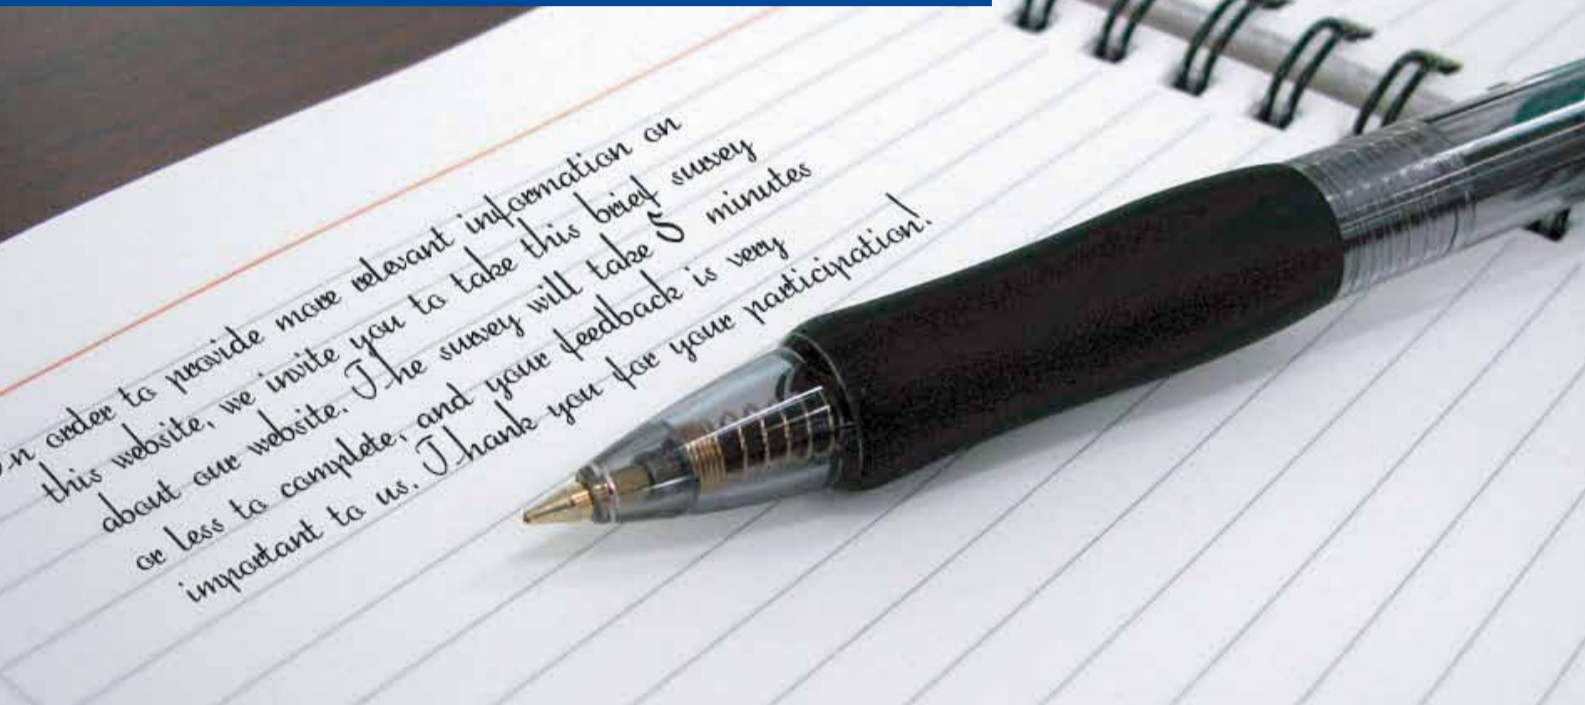 In order to provide more relevant information on
this website, we invite you to take this brief survey
about our website. The survey will take 5 minutes
or less to complete, and your feedback is very
important to us. Thank you for your participation!